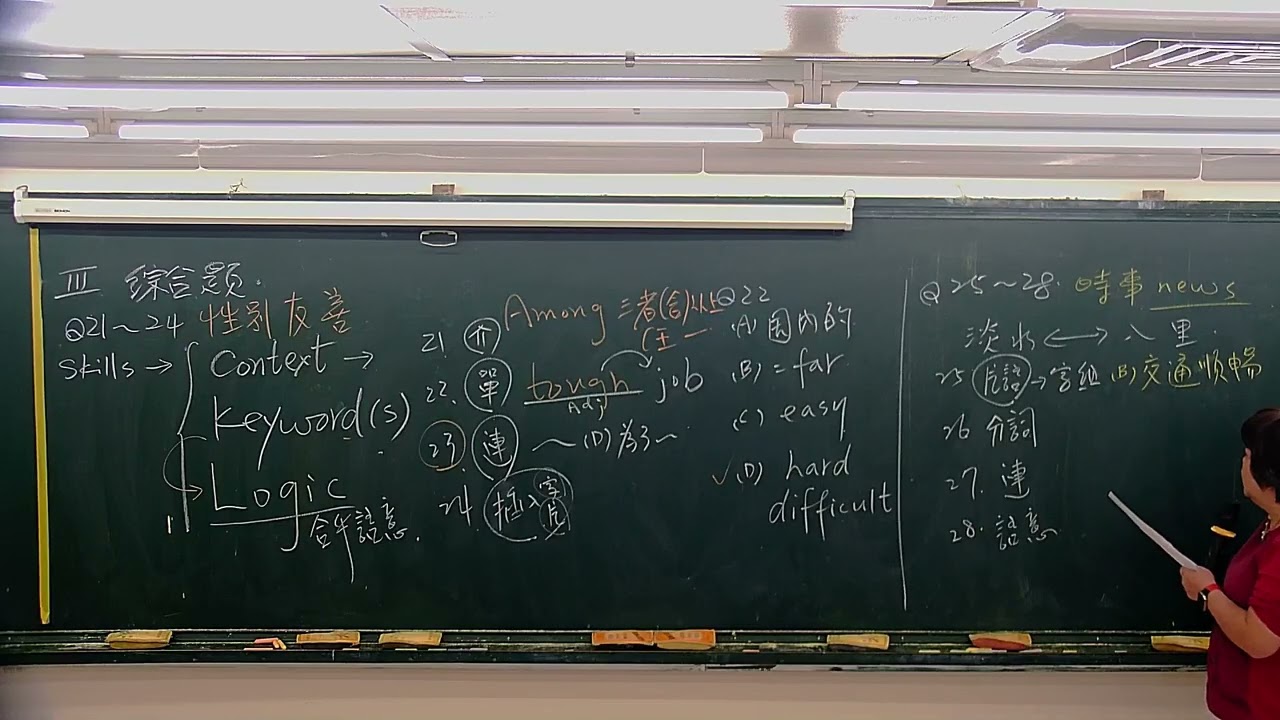 III 綜合題.
Q21～24 性別友善
Skills → Context →
Keyword(s)
Logic
合乎語意.
Among 三者(含)以上
任一
21. 介
22. 單 tough job
Adj
23. 連 ～(D)為了～
24. 插入 字 片
Q22
(A) 國內的
(B) = far
(C) easy
✓(D) hard
difficult
Q 25～28. 時事 news
淡水 ↔ 八里.
25 片語→字組 (B)交通順暢
26 分詞
27. 連
28. 語意